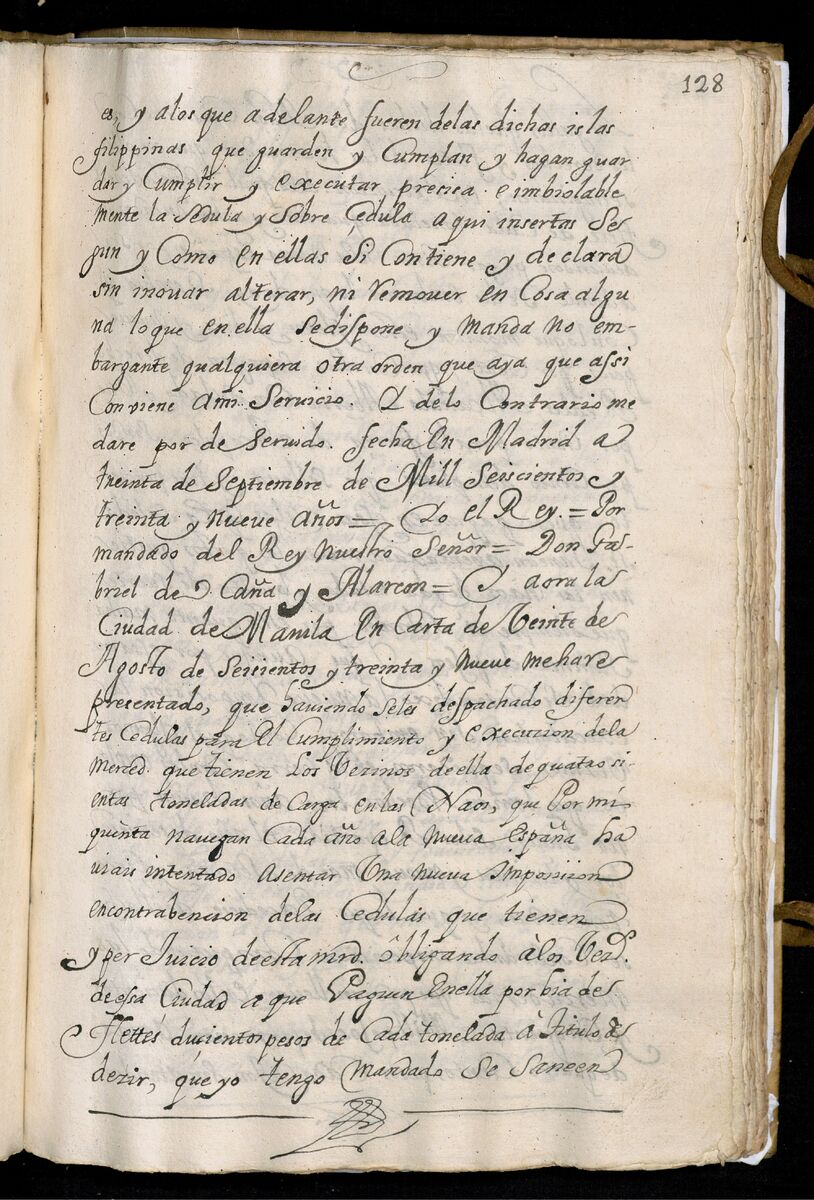 128
es, y alos que adelante fueren delas dichas islas
filippinas que guarden y Cumplan y hagan guar
dar y Cumplir y executar precisa e imbiolable
mente la Sedula y Sobre Cedula aqui insertas Se
gun y Como en ellas Si Contiene y declara
sin inouar alterar, ni remouer en Cosa algu
na loque en ella Sedispone y manda no em-
bargante qualquiera otra orden que aya que assi
Conviene ami Seruicio. Y delo Contrario me
dare por de Seruido. fecha En Madrid a
treinta de Septiembre de Mill Seiscientos y
treinta y nueve años= Yo el Rey.= Por
mandado del Rey nuestro Señor= Don Ga-
briel de Ocaña y Alarcon= Y aora la
Ciudad de Manila En Carta de Veinte de
Agosto de Seisientos y treinta y nueve meha
presentado, que haviendo seles despachado diferen
tes Cedulas para El Cumplimiento y execuzion dela
merced. que tienen Los Vezinos de ella de quatrosi-
entas toneladas de Carga en las Naos, que Por mi
quenta navegan Cada año ala nueva España ha
viais intentado asentar Una nueva Imposicion
encontrabencion delas Cedulas que tienen
y per Juicio deesta mrd. obligando à los Vezos.
de essa Ciudad a que Paguen Enella por bia de
Flettes ducientos pesos de Cada tonelada à titulo de
dezir, que yo tengo mandado Se Saneen